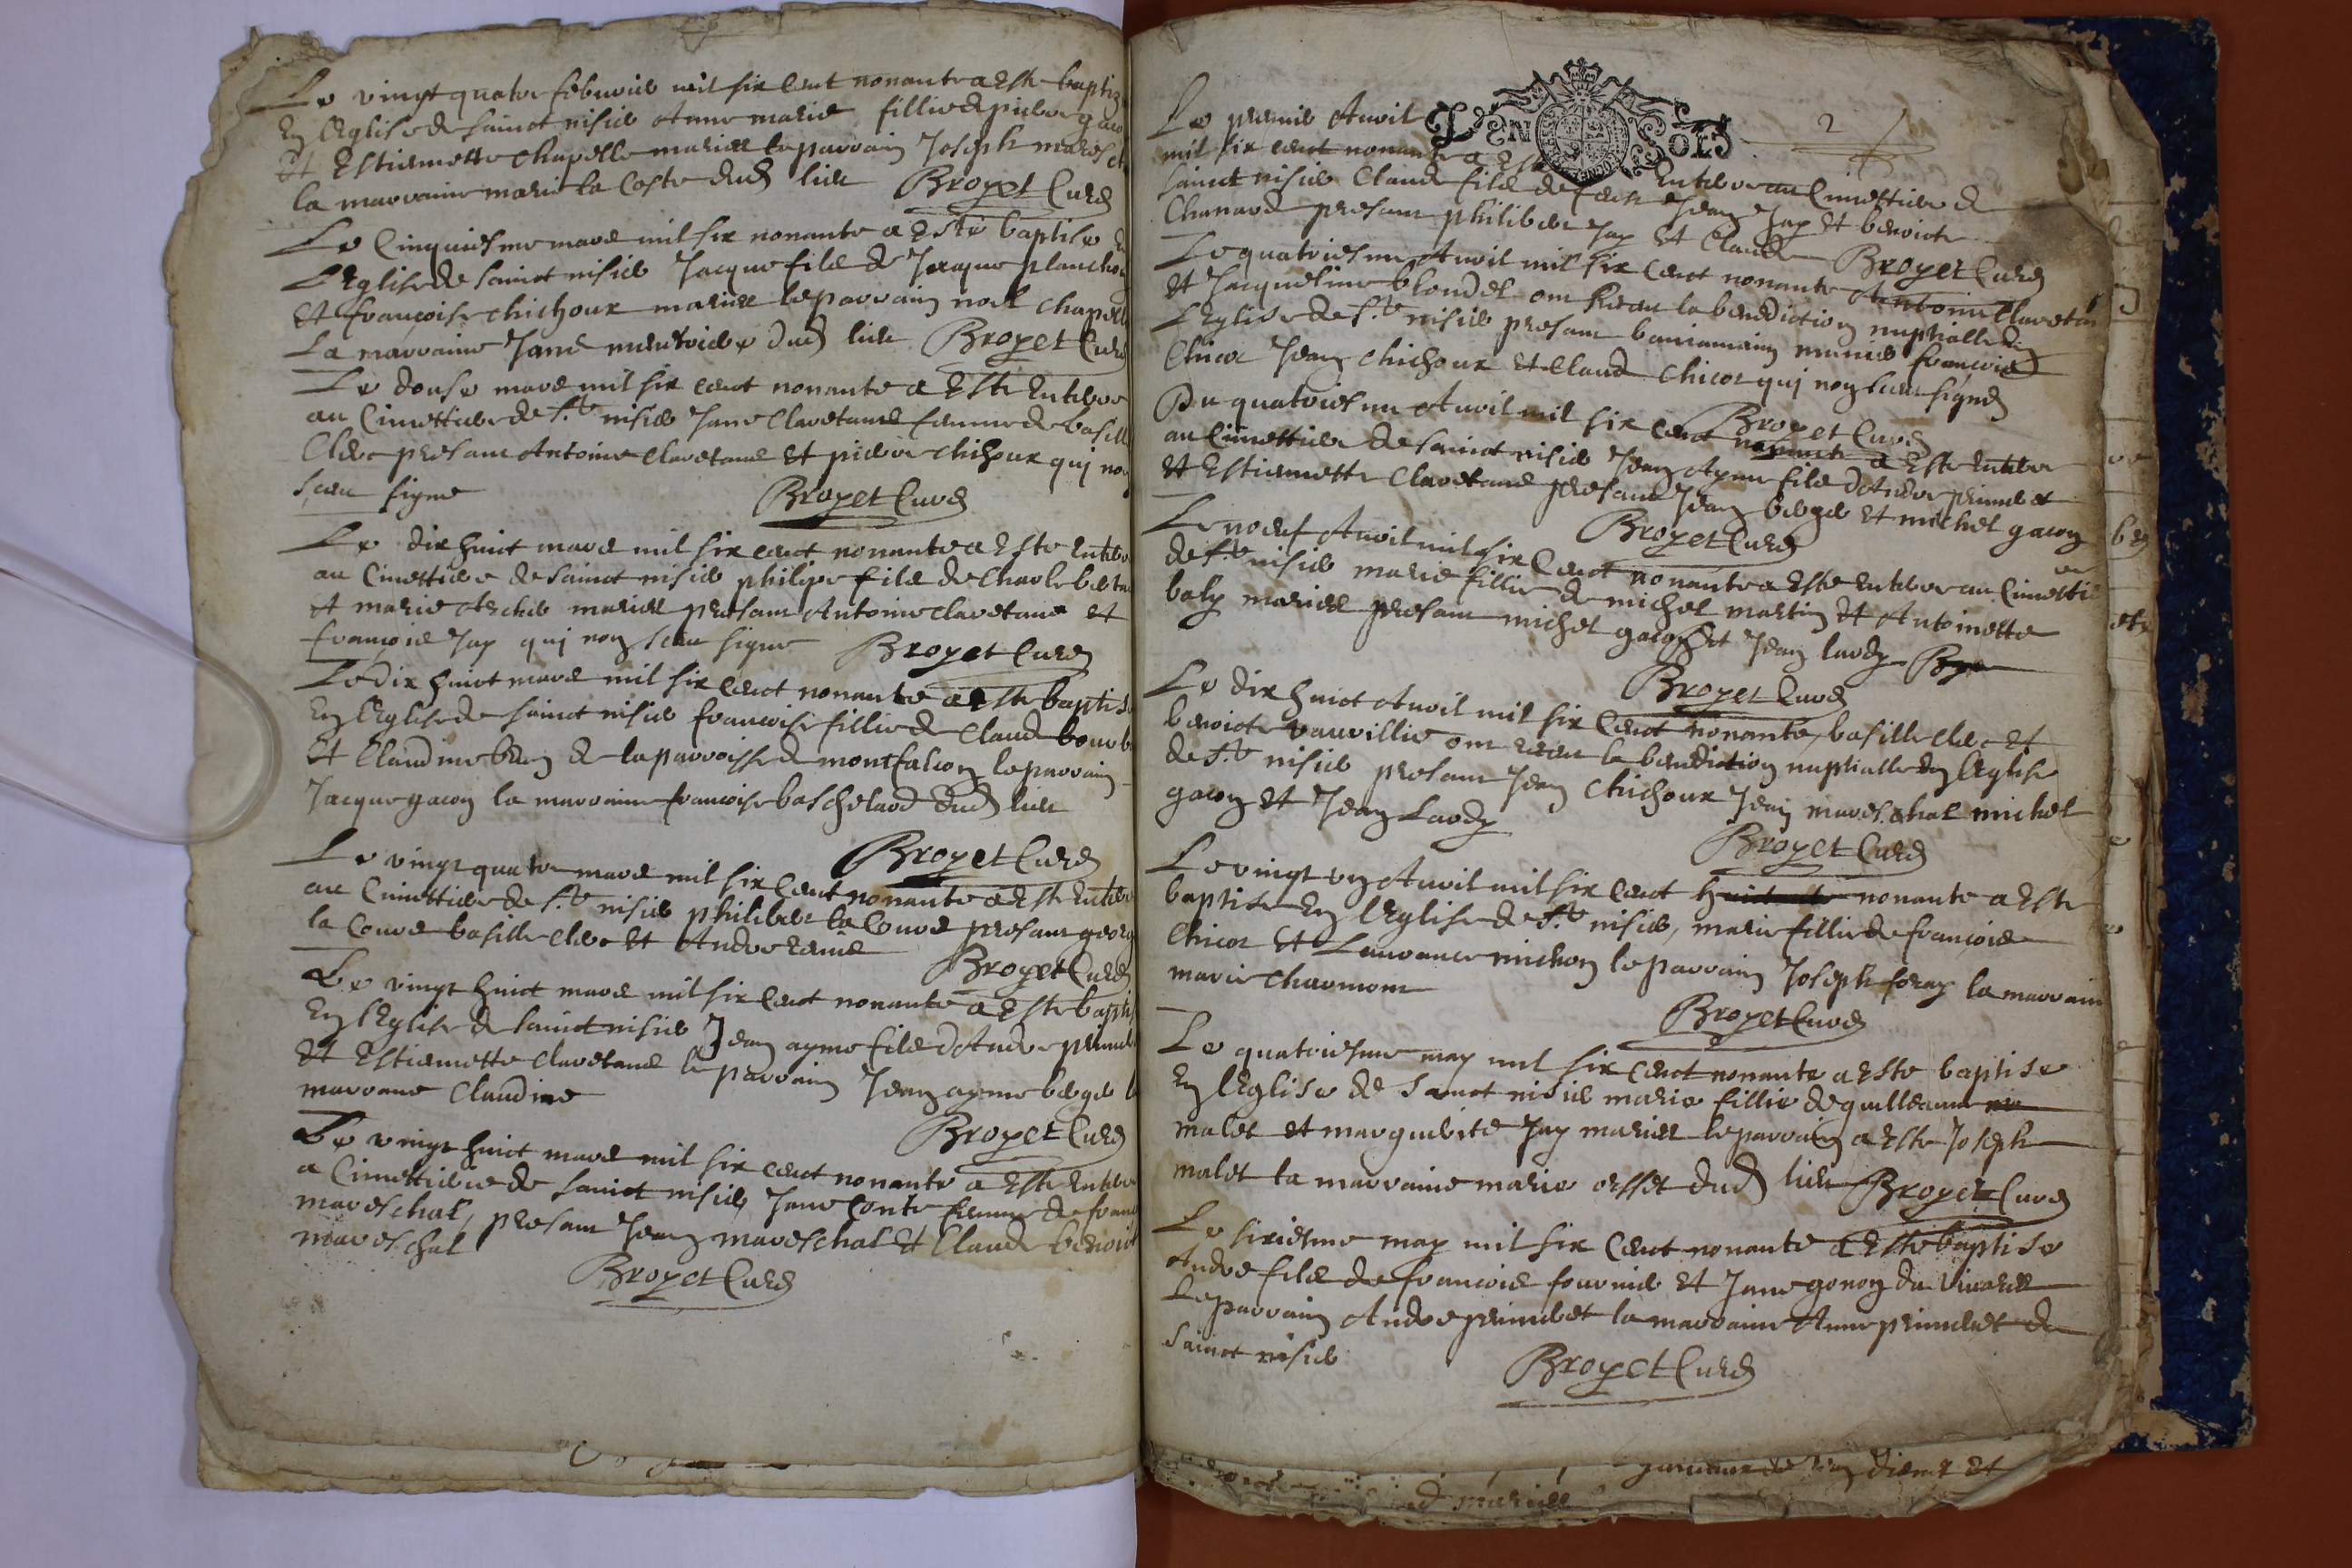 Le vingt quatre febvrier mil six cent nonante a este baptiz
En l'Eglise de sainct nisier Anne marie fillie de pierre gaco
Et Estiennette chapelle mariez le parrain Joseph maresch
la marraine marie la Coste dud lieu Broyet Curé
Le Cinquiesme mars mil six nonante a Esté baptise
L'Eglise de sainct nisier Jacque filz de Jacque planchon
et francoise chichoux mariez le parrain noel chapell
La marraine Jane dud lieu Broyet Curé
Le douse mars mil six cent nonante a Este Enterre
au Cimettiere de St nisier Jane Clavetane femme de basill
Clerc presant Antoine Clavetane Et pierre chichoux qui non
sceu signe Broyet Curé
Le dix huict mars mil six cent nonante a Este Enterre
au Cimettiere de sainct nisier philipe filz de Charle
et marie Archer mariez presant Antoine Clavetane et
francois Jay qui non sceu signe Broyet Curé
Le dix huict mars mil six cent nonante a Este baptise
En l'Eglise de sainct nisier francoise fillie de Claude
Et Claudine de la parroisse de montfalcon le parrain
Jacque gacon la marraine francoise baschelard dud lieu
Broyet Curé
Le vingt quatre mars mil six Cent nonante a Este Enterre
au Cimettiere de St nisier philibert la Coure presant georg
la Coure basille clerc Et Andre
Broyet Curé
Le vingt huict mars mil six Cent nonante a Este baptis
En l'Eglise de sainct nisier Jean ayme filz d'Andre
Et Estiennette Clavetane le parrain Jean ayme berger l
marrane Claudine
Broyet Curé
Le vingt huict mars mil six cent nonante a Este Enterre
a Cimettiere de sainct nisier Jane Conte femme de franc
mareschal, presant Jean mareschal Et Claude benoict
mareschal
Broyet Curé
Le premier Avril
VN SOLS
2
mil six cent nonante a Este Enterre au Cimettiere de
sainct nisier Claude filz de Jean Jay Et benoicte
Chanard presant philibert Jay Et Claude Broyet Curé
Le quatriesme Avril mil six Cent nonante Antoine Clavetane
et Jacquesline blondel ont Receu la benediction nuptialle En
L'Eglise de St nisier presant francois
Chicot Jean chichoux et Claude chicot qui non sceu signé
Broyet Curé
Du quatriesme Avril mil six cent nonante a Este Enterre
au Cimettiere de sainct nisier Jean Ayme filz d'Andre
Et Estiennette Clavetane presant Jean berger Et michel gacon
Broyet Curé
Le noeuf Avril mil six Cent nonante a Este Enterre au Cimettie
de St nisier marie fillie de michel martin Et Antoinette
baly mariez presant michel gacon Et Jean lardy
Broyet Curé
Le dix huict Avril mil six Cent nonante, basille clerc Et
benoicte vauvillie ont receu la benediction nuptialle En l'Eglise
de St nisier presant Jean Chichoux Jean mareschal michel
gacon Et Jean Lardy
Broyet Curé
Le vingt un Avril mil six cent nonante a Este
baptise En l'Eglise de St nisier, marie fillie de francois
Chicot Et Laurance michon le parrain Joseph foray la marrain
marie Charmont
Broyet Curé
Le quatriesme may mil six cent nonante a Este baptise
En l'Eglise de Sainct nisier marie fillie de guilleaume
malet et marguerite Jay mariez le parrain a Este Joseph
malet la marraine marie dud lieu Broyet Curé
Le sixiesme may mil six Cent nonante a Este baptise
Andre filz de francois fournier Et Jane gonon
Le parrain Andre la marraine Anne de
Sainct nisier
Broyet Curé